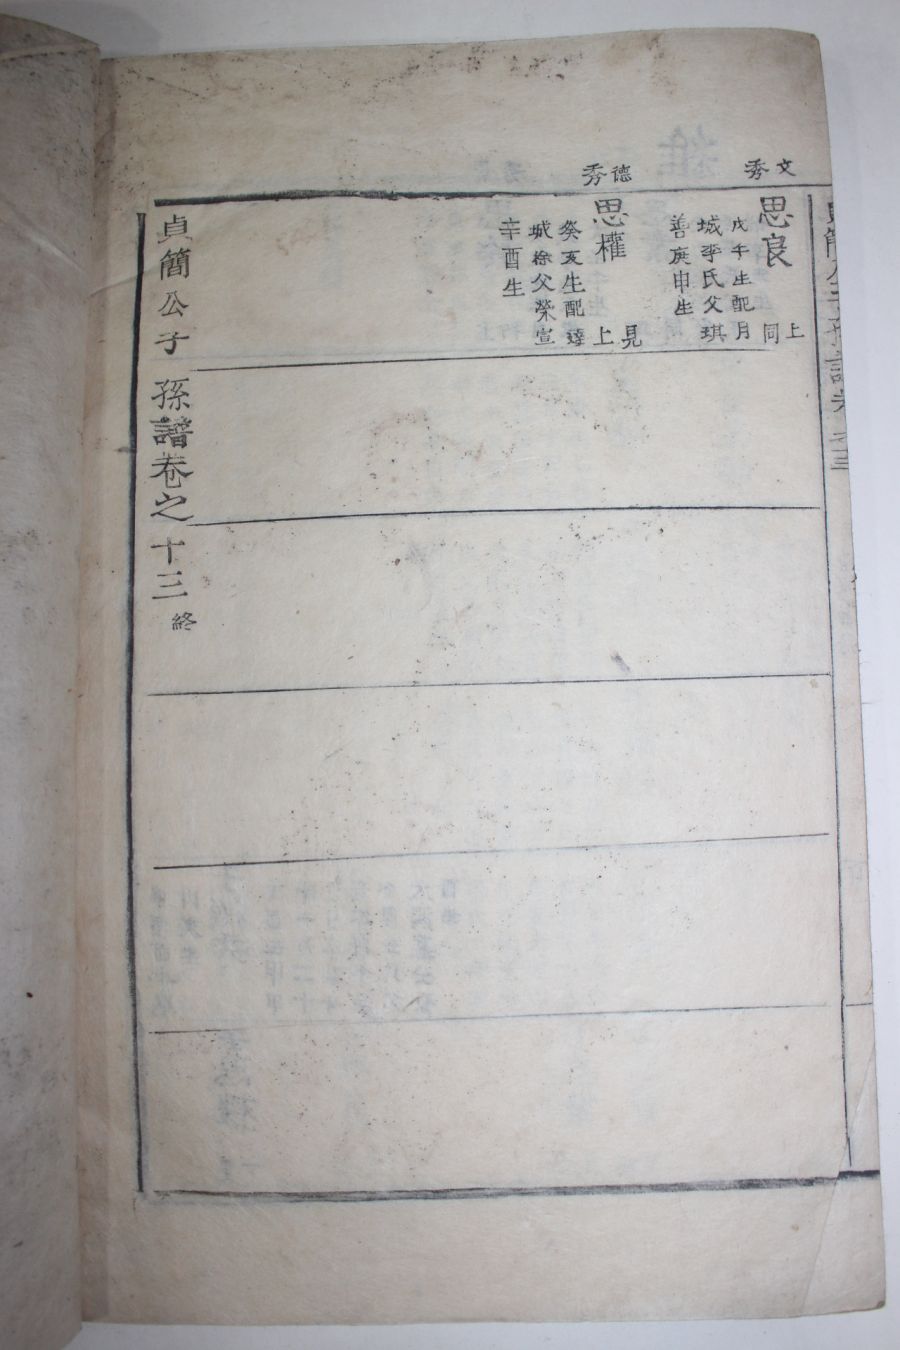 文秀
思良
上同
戊午生配月
城李氏父琪
善庚申生
德秀
思權
見上
癸亥生配達
城徐父榮宣
辛酉生
貞簡公子孫譜卷之十三終